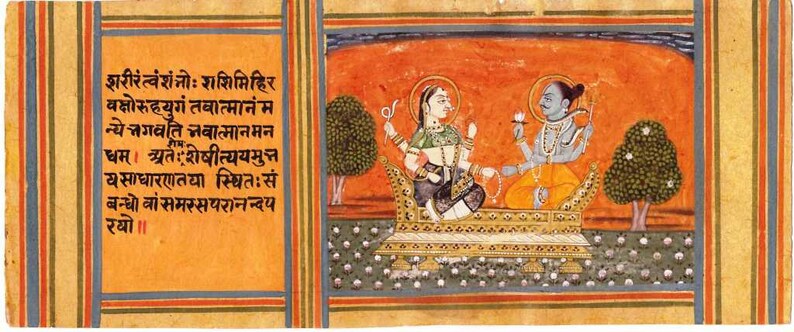 शरीरंत्वंशंभोः शशिमिहिर
वक्षोरुहयुगं तवात्मानंम
न्येभगवति नवात्मानमन
घम्। अतः शेषीत्ययमुभ
यसाधारणतया स्थितः सं
बन्धो वां समरसपरानन्दप
रयो॥